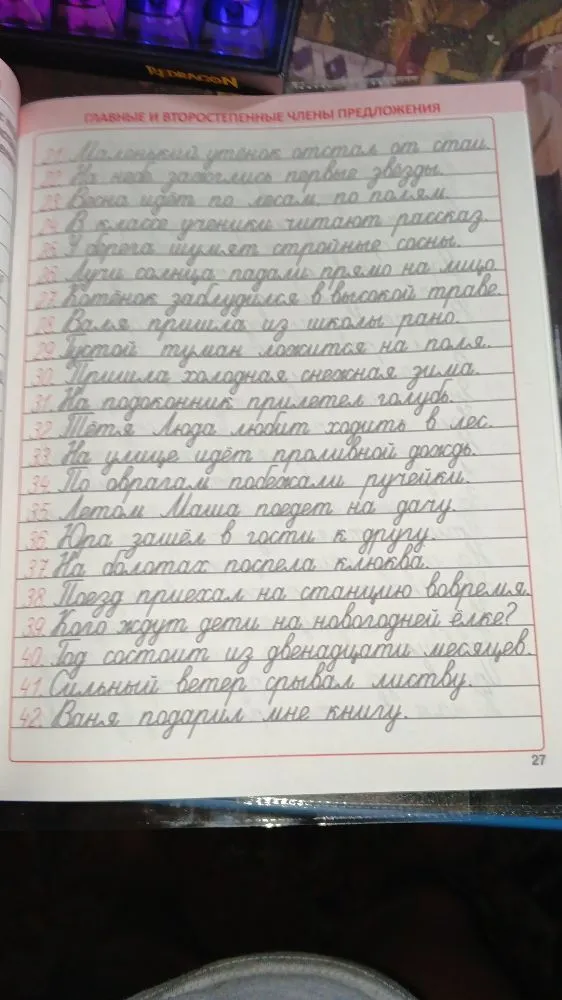 REDRAGON
ГЛАВНЫЕ И ВТОРОСТЕПЕННЫЕ ЧЛЕНЫ ПРЕДЛОЖЕНИЯ
21. Маленький утёнок отстал от стаи.
22. На небе зажглись первые звёзды.
23. Весна идёт по лесам, по полям.
24. В классе ученики читают рассказ.
25. У берега шумят стройные сосны.
26. Лучи солнца падали прямо на лицо.
27. Котёнок заблудился в высокой траве.
28. Валя пришла из школы рано.
29. Густой туман ложится на поля.
30. Пришла холодная снежная зима.
31. На подоконник прилетел голубь.
32. Тётя Люда любит ходить в лес.
33. На улице идёт проливной дождь.
34. По оврагам побежали ручейки.
35. Летом Маша поедет на дачу.
36. Юра зашёл в гости к другу.
37. На болотах поспела клюква.
38. Поезд приехал на станцию вовремя.
39. Кого ждут дети на новогодней ёлке?
40. Год состоит из двенадцати месяцев.
41. Сильный ветер срывал листву.
42. Ваня подарил мне книгу.
27